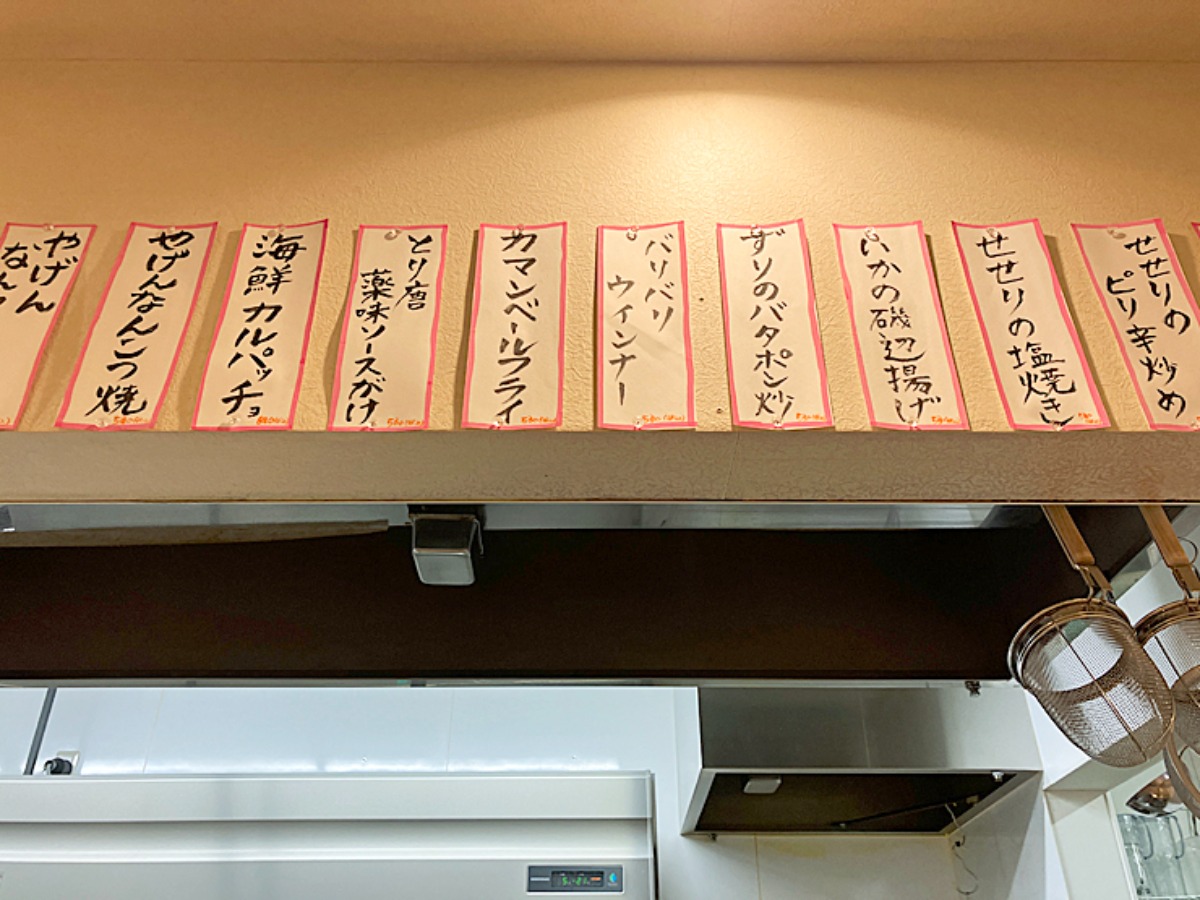 せせりの
ピリ辛炒め
せせりの塩焼き
いかの磯辺揚げ
ずりのバタポン炒
バリバリ
ウィンナー
カマンベールフライ
とり唐
薬味ソースがけ
海鮮カルパッチョ
やげんなんこつ焼
やげん
なん